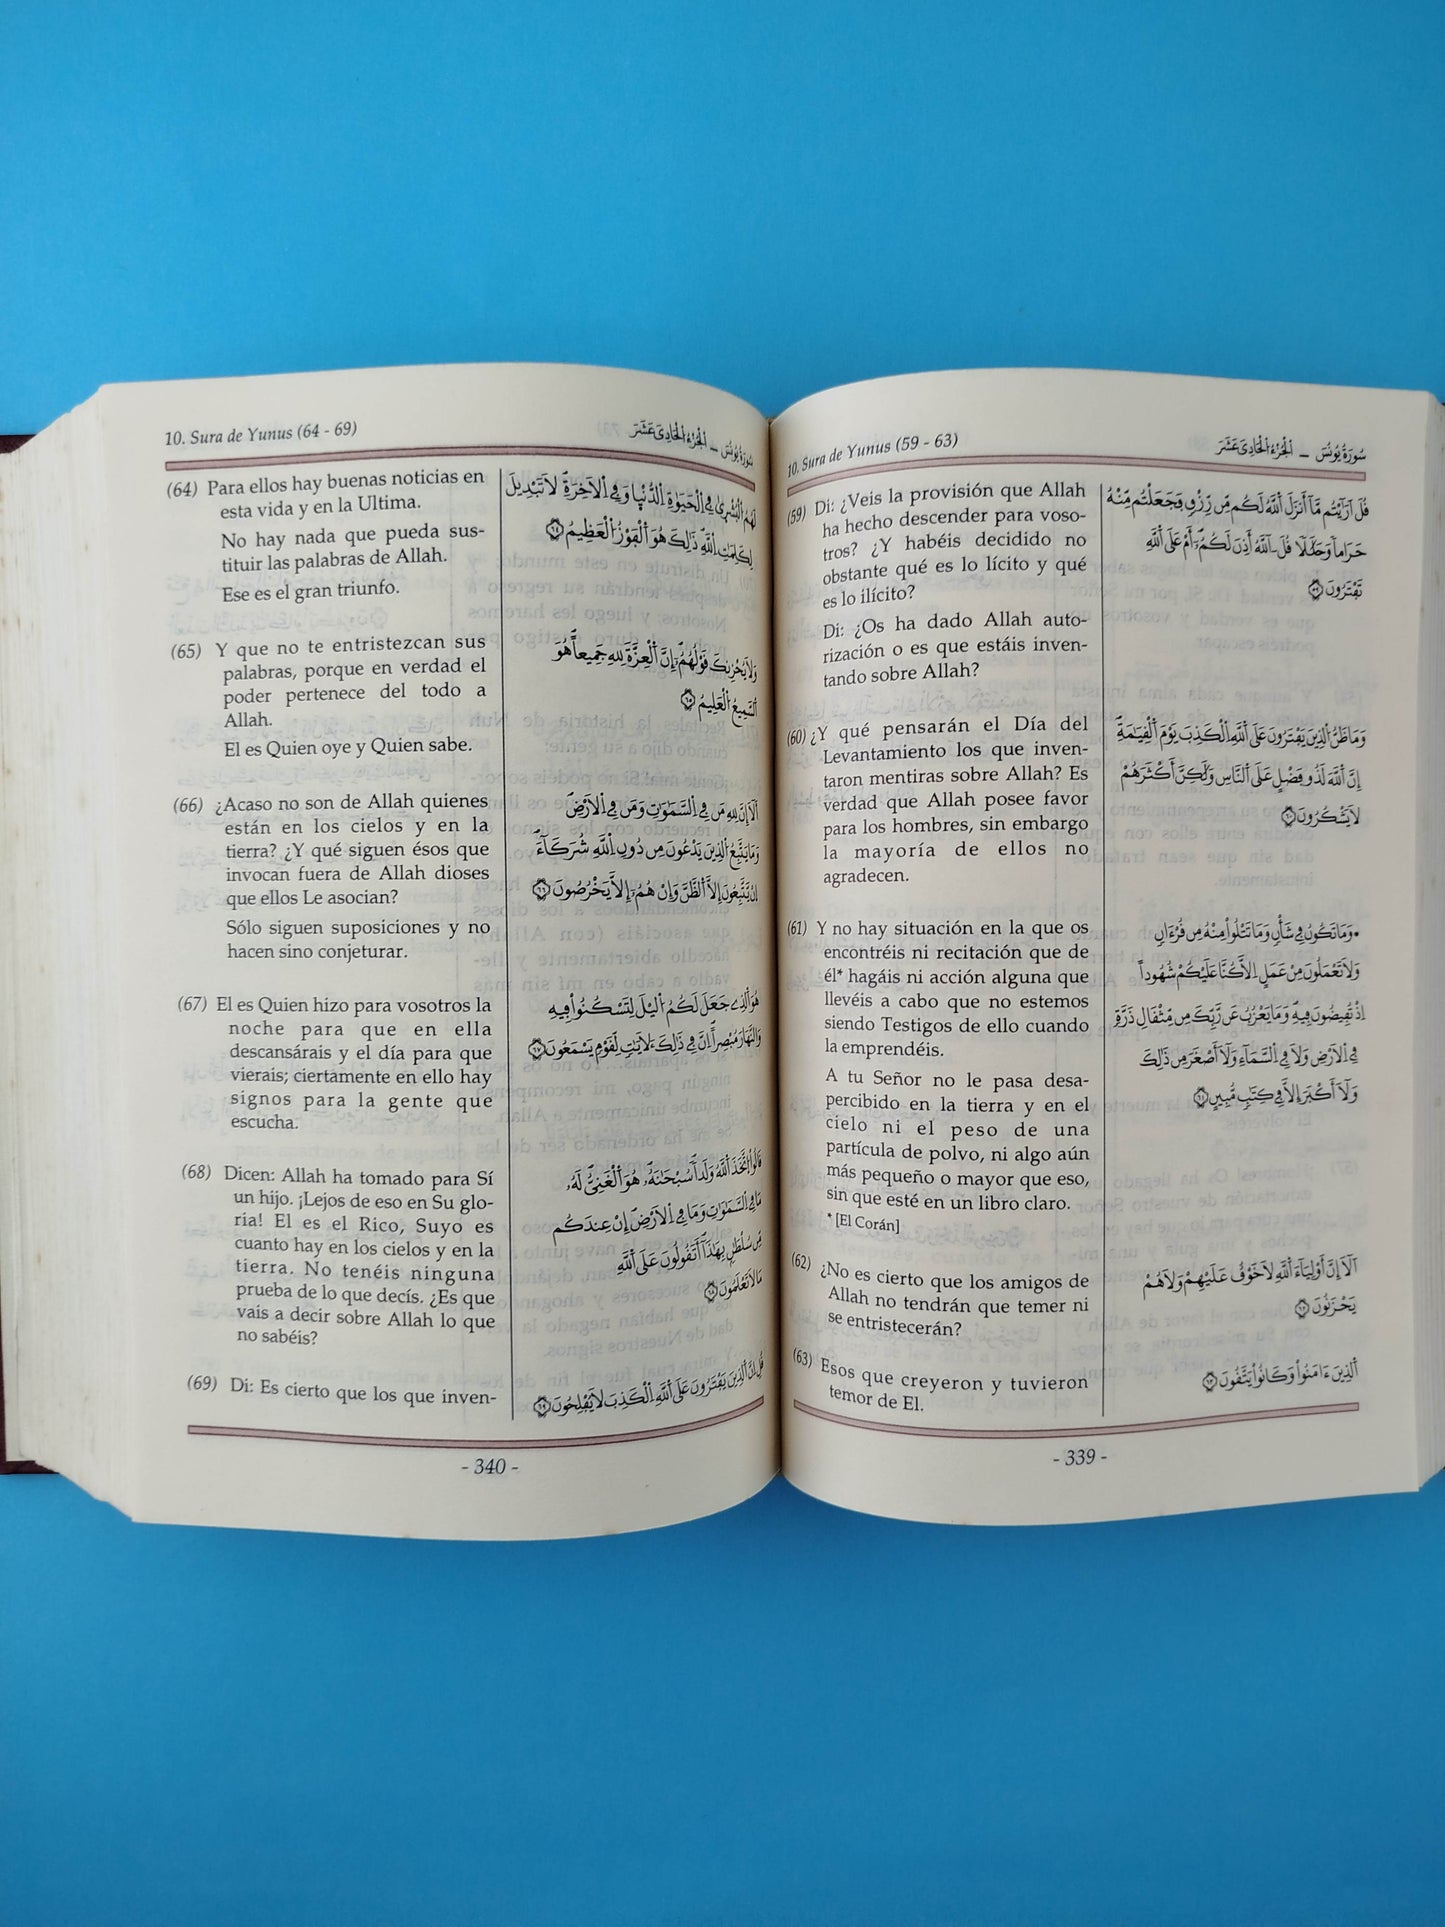 10. Sura de Yunus (59 - 63)
سُورَةُ يُونُسَ ــ اَلْجُزْءُ الْحَادِىَ عَشَرَ
(59) Di: ¿Veis la provisión que Allah
ha hecho descender para voso-
tros? ¿Y habéis decidido no
obstante qué es lo lícito y qué
es lo ilícito?
Di: ¿Os ha dado Allah auto-
rización o es que estáis inven-
tando sobre Allah?
(60) ¿Y qué pensarán el Día del
Levantamiento los que inven-
taron mentiras sobre Allah? Es
verdad que Allah posee favor
para los hombres, sin embargo
la mayoría de ellos no
agradecen.
(61) Y no hay situación en la que os
encontréis ni recitación que de
él* hagáis ni acción alguna que
llevéis a cabo que no estemos
siendo Testigos de ello cuando
la emprendéis.
A tu Señor no le pasa desa-
percibido en la tierra y en el
cielo ni el peso de una
partícula de polvo, ni algo aún
más pequeño o mayor que eso,
sin que esté en un libro claro.
* [El Corán]
(62) ¿No es cierto que los amigos de
Allah no tendrán que temer ni
se entristecerán?
(63) Esos que creyeron y tuvieron
temor de El.
قُلَ اَرَٰيْتُم مَّآ أَنزَلَ اَللَّهُ لَكُم مِّن رِّزْقٍ فَجَعَلْتُم مِّنْهُ
حَرَاماً وَحَلَٰلًا قُلَ ـَآللَّهُ أَذِنَ لَكُمُۥٓ أَمْ عَلَى اَللَّهِ
تَفْتَرُونَ ٥٩
وَمَا ظَنُّ اُلذِينَ يَفْتَرُونَ عَلَى اَللَّهِ اِلْكَذِبَ يَوْمَ اَلْقِيَٰمَةِ
إِنَّ اَللَّهَ لَذُو فَضْلٍ عَلَى اَلنَّاسِ وَلَٰكِنَّ أَكْثَرَهُمْ
لَا يَشْكُرُونَ ٦٠
• وَمَا تَكُونُ فِي شَأْنٍ وَمَا تَتْلُواْ مِنْهُ مِن قُرْءَانٍ
وَلَا تَعْمَلُونَ مِنْ عَمَلٍ اِلَّا كُنَّا عَلَيْكُمْ شُهُوداً
اِذْ تُفِيضُونَ فِيهِ وَمَا يَعْزُبُ عَن رَّبِّكَ مِن مِّثْقَالِ ذَرَّةٍ
فِي اِلْأَرْضِ وَلَا فِي اِلسَّمَآءِ وَلَآ أَصْغَرَ مِن ذَٰلِكَ
وَلَآ أَكْبَرَ إِلَّا فِي كِتَٰبٍ مُّبِينٍ ٦١
أَلَآ إِنَّ أَوْلِيَآءَ اَللَّهِ لَا خَوْفٌ عَلَيْهِمْ وَلَا هُمْ
يَحْزَنُونَ ٦٢
اَلذِينَ ءَامَنُواْ وَكَانُواْ يَتَّقُونَ ٦٣
- 339 -
10. Sura de Yunus (64 - 69)
سُورَةُ يُونُسَ ــ اَلْجُزْءُ الْحَادِىَ عَشَرَ
(64) Para ellos hay buenas noticias en
esta vida y en la Ultima.
No hay nada que pueda sus-
tituir las palabras de Allah.
Ese es el gran triunfo.
(65) Y que no te entristezcan sus
palabras, porque en verdad el
poder pertenece del todo a
Allah.
El es Quien oye y Quien sabe.
(66) ¿Acaso no son de Allah quienes
están en los cielos y en la
tierra? ¿Y qué siguen ésos que
invocan fuera de Allah dioses
que ellos Le asocian?
Sólo siguen suposiciones y no
hacen sino conjeturar.
(67) El es Quien hizo para vosotros la
noche para que en ella
descansárais y el día para que
vierais; ciertamente en ello hay
signos para la gente que
escucha.
(68) Dicen: Allah ha tomado para Sí
un hijo. ¡Lejos de eso en Su glo-
ria! El es el Rico, Suyo es
cuanto hay en los cielos y en la
tierra. No tenéis ninguna
prueba de lo que decís. ¿Es que
vais a decir sobre Allah lo que
no sabéis?
(69) Di: Es cierto que los que inven-
لَهُمُ اُلْبُشْرَىٰ فِي اِلْحَيَوٰةِ اِلدُّنْيَا وَفِي اِلْأَخِرَةِ لَا تَبْدِيلَ
لِكَلِمَٰتِ اِللَّهِ ذَٰلِكَ هُوَ اَلْفَوْزُ اُلْعَظِيمُ ٦٤
وَلَا يُحْزِنكَ قَوْلُهُمُۥٓ إِنَّ اَلْعِزَّةَ لِلهِ جَمِيعاً هُوَ
اَلسَّمِيعُ اُلْعَلِيمُ ٦٥
أَلَآ إِنَّ لِلهِ مَن فِي اِلسَّمَٰوَٰتِ وَمَن فِي اِلْأَرْضِ
وَمَا يَتَّبِعُ اُلذِينَ يَدْعُونَ مِن دُونِ اِللَّهِ شُرَكَآءَ
اِنْ يَّتَّبِعُونَ إِلَّا اَلظَّنَّ وَإِنْ هُمُۥٓ إِلَّا يَخْرُصُونَ ٦٦
هُوَ اَلذِي جَعَلَ لَكُمُ اُلَّيْلَ لِتَسْكُنُواْ فِيهِ
وَالنَّهَارَ مُبْصِراً اِنَّ فِي ذَٰلِكَ ءَلَايَٰتٍ لِّقَوْمٍ يَسْمَعُونَ ٦٧
قَالُواْ اُتَّخَذَ اَللَّهُ وَلَداً سُبْحَٰنَهُۥ هُوَ اَلْغَنِيُّ لَهُۥ
مَا فِي اِلسَّمَٰوَٰتِ وَمَا فِي اِلْأَرْضِ إِنْ عِندَكُم
مِّن سُلْطَٰنٍ بِهَٰذَآ أَتَقُولُونَ عَلَى اَللَّهِ
مَا لَا تَعْلَمُونَ ٦٨
قُلِ اِنَّ اَلذِينَ يَفْتَرُونَ عَلَى اَللَّهِ اِلْكَذِبَ لَا يُفْلِحُونَ ٦٩
- 340 -